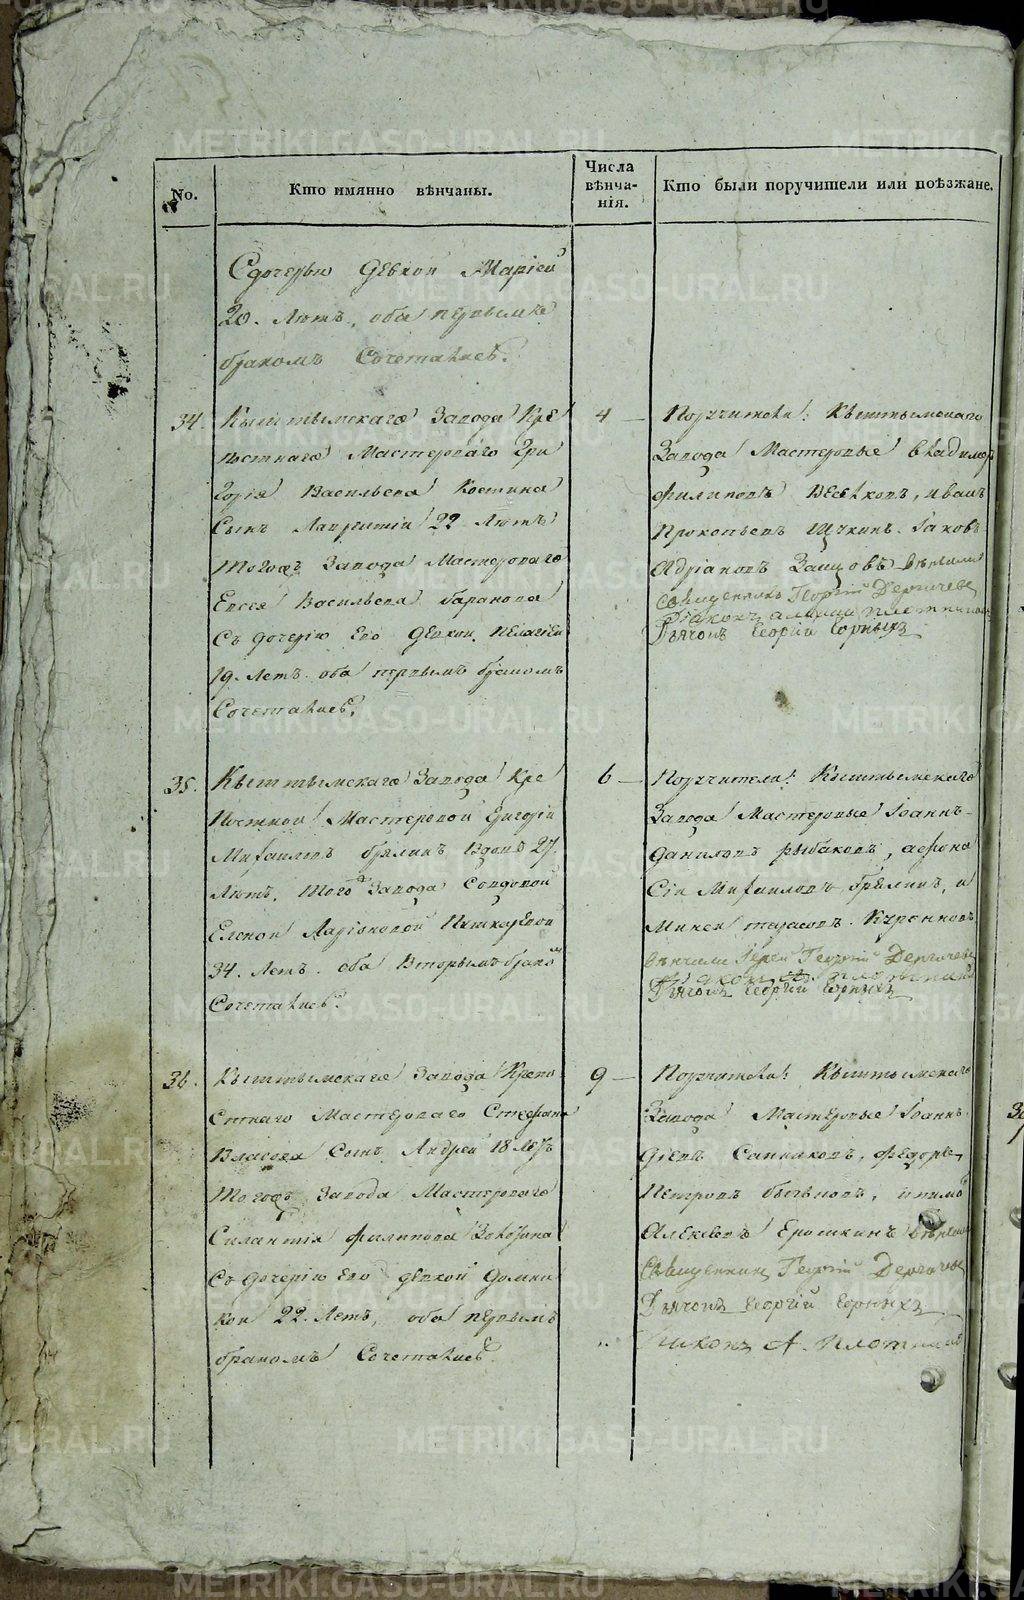 No.
Кто имянно вѣнчаны.
Числа
вѣнча-
нія.
Кто были поручители или поѣзжане.
Сдочерью девкой Маріей
20. Лѣтъ, оба первымъ
бракомъ Сочетались.
34.
Кыштымскаго Завода Кре
постнаго Мастероваго Гри
горія Васильева Костина
Сынъ Лаврентій 22 Лѣтъ
тогожъ Завода Мастероваго
Евсея Васильева Баранова
Съ дочерію его девкой Пелагіей
19. Летъ. оба первымъ бракомъ
Сочетались.
4
Поручители: Кыштымскаго
Завода Мастеровые Владимиръ
Филиповъ, Иванъ
Прокопьевъ Щукинъ. Іаковъ
Адріановъ вѣнчали
Священникъ Георгій Дергачевъ
Діаконъ
Дьячокъ Георгій Горныхъ
35.
Кыштымскаго Завода Кре
постной Мастеровой Григорій
Михаиловъ Брялинъ Вдовъ 27
Лѣтъ, того Завода Совдовой
Еленой Ларіоновой
34. Летъ. оба Вторымъ брако
Сочетались.
6
Поручители: Кыштымскаго
Завода Мастеровые Іоаннъ
Даниловъ Рыбаковъ, Афона
сій Михаиловъ Брялинъ, и
Миней Тарасовъ. Куренковъ
вѣнчали Іерей Георгій Дергачевъ
Дьячокъ Георгій Горныхъ
36.
Кыштымскаго Завода Крепо
стнаго Мастероваго Стефана
Власова Сынъ Андрей 18 Летъ
тогожъ Завода Мастероваго
Силантія Филипова
Съ дочерію его девкой Домни
кой 22. Летъ, оба первымъ
бракомъ Сочетались.
9
Поручители: Кыштымскаго
Завода Мастеровые Іоаннъ
Санниковъ, Федоръ
Петровъ
Алексеевъ Ерошкинъ вѣнчали
Священникъ Георгій Дергачевъ
Дьячокъ Георгій Горныхъ
А. Плотниковъ
METRIKI.GASO-URAL.RU